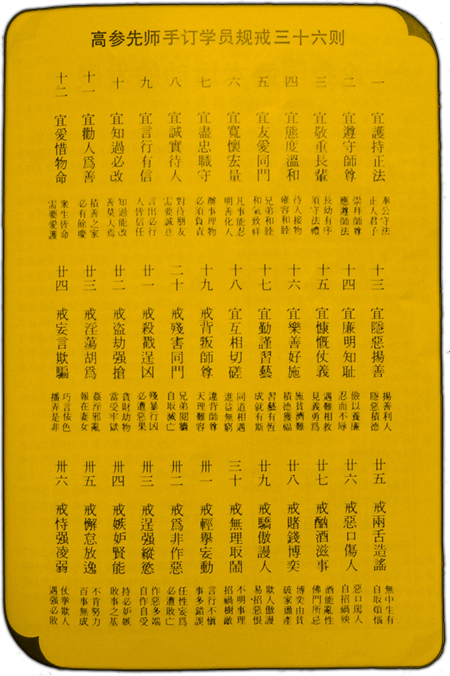 高参先师手订学员规戒三十六则
一 宜護持正法 奉公守法 正人君子
二 宜遵守師尊 崇拜師尊 應遵師法
三 宜敬重長輩 長幼有序 須守法禮
四 宜態度溫和 待人接物 雍容和睦
五 宜友愛同門 兄弟和睦 和氣致祥
六 宜寬懷宏量 凡事能忍 明善化人
七 宜盡忠職守 辦事理物 必須負責
八 宜誠實待人 對待朋友 需要誠意
九 宜言行有信 言出必行 人皆信任
十 宜知過必改 知過能改 善莫人爲
十一 宜勸人爲善 積善之家 必有餘慶
十二 宜愛惜物命 衆生皆命 需要愛護
十三 宜隱惡揚善 揚善利人 隱惡積德
十四 宜廉明知耻 儉以養廉 忍而不辱
十五 宜慷慨仗義 遇難相救 見義勇爲
十六 宜樂善好施 施貧濟難 積德獲福
十七 宜勤謹習藝 習藝有恆 成就有斯
十八 宜互相切磋 同道相遇 進益無窮
十九 戒背叛師尊 違背師尊 天理難容
二十 戒殘害同門 兄弟鬩牆 自取滅亡
廿一 戒殺戮逞凶 殘暴行凶 必遭惡果
廿二 戒盜劫强搶 貪財劫物 當受牢獄
廿三 戒淫蕩胡爲 姦淫邪亂 報在妻女
廿四 戒妄言欺騙 巧言依色 播弄是非
廿五 戒兩舌造謠 無中生有 自取煩惱
廿六 戒惡口傷人 惡口罵人 自招禍殃
廿七 戒酗酒滋事 酒能亂性 佛門所忌
廿八 戒賭錢博奕 博奕由貧 破家盡產
廿九 戒驕傲謾人 欺人傲謾 易招惡恨
三十 戒無理取鬧 不明事理 招禍樹敵
卅一 戒輕舉妄動 言行不愼 事多錯誤
卅二 戒爲非作惡 任性妄爲 必遭敗亡
卅三 戒逞强縱慾 作惡多端 自作自受
卅四 戒嫉妒賢能 持必妒嫉 敗事之基
卅五 戒懈怠放逸 不肯努力 百事無成
卅六 戒恃强凌弱 仗拳欺人 遇强必敗